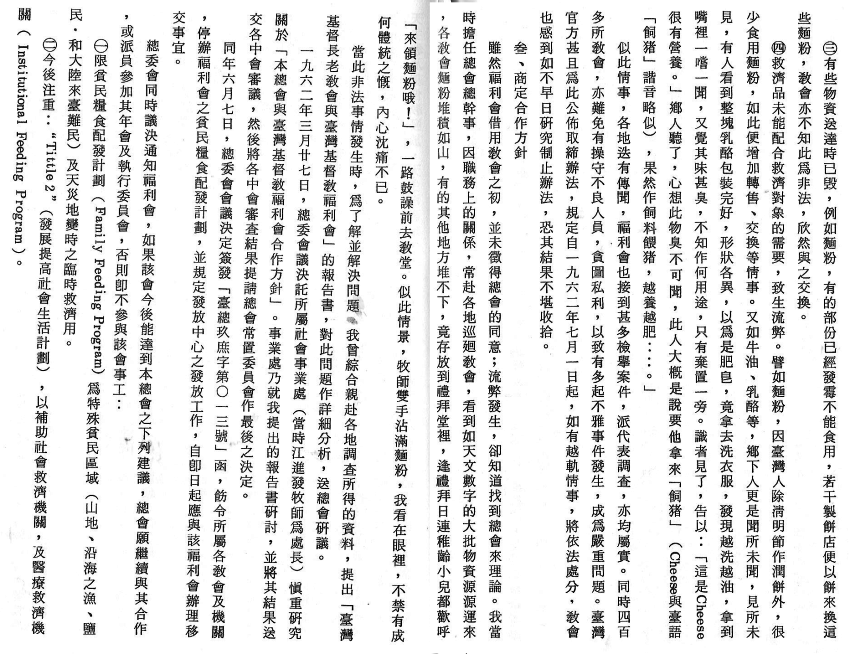 ㈢有些物資送達時已毀，例如麵粉，有的部份已經發霉不能食用，若干製餅店便以餅來換這
些麵粉，教會亦不知此爲非法，欣然與之交換。
㈣救濟品未能配合救濟對象的需要，致生流弊。譬如麵粉，因臺灣人除清明節作潤餅外，很
少食用麵粉，如此便增加轉售、交換等情事。又如牛油、乳酪等，鄉下人更是聞所未聞，見所未
見，有人看到整塊乳酪包裝完好，形狀各異，以爲是肥皂，竟拿去洗衣服，發現越洗越油，拿到
嘴裡一嚐一聞，又覺其味甚臭，不知作何用途，只有棄置一旁。識者見了，告以：「這是Cheese
很有營養。」鄉人聽了，心想此物臭不可聞，此人大概是說要他拿來「飼猪」（Cheese與臺語
「飼猪」諧音略似），果然作飼料餵猪，越養越肥…。」
似此情事，各地迭有傳聞，福利會也接到甚多檢舉案件，派代表調查，亦均屬實。同時四百
多所教會，亦難免有操守不良人員，貪圖私利，以致有多起不雅事件發生，成爲嚴重問題。臺灣
官方甚且爲此公佈取締辦法，規定自一九六二年七月一日起，如有越軌情事，將依法處分，教會
也感到如不早日研究制止辦法，恐其結果不堪收拾。
叁、商定合作方針
雖然福利會借用教會之初，並未徵得總會的同意；流弊發生，卻知道找到總會來理論。我當
時擔任總會總幹事，因職務上的關係，常赴各地巡迴教會，看到如天文數字的大批物資源源運來
，各教會麵粉堆積如山，有的其他地方堆不下，竟存放到禮拜堂裡，逢禮拜日連稚齡小兒都歡呼
「來領麵粉哦！」，一路鼓譟前去教堂。似此情景，牧師雙手沾滿麵粉，我看在眼裡，不禁有成
何體統之慨，內心沈痛不已。
當此非法事情發生時，爲了解並解決問題，我曾綜合親赴各地調查所得的資料，提出「臺灣
基督長老教會與臺灣基督教福利會」的報告書，對此問題作詳細分析，送總會研議。
一九六二年三月廿七日，總委會議決託所屬社會事業處（當時江進發牧師爲處長）愼重研究
關於「本總會與臺灣基督教福利會合作方針」。事業處乃就我提出的報告書研討，並將其結果送
交各中會審議，然後將各中會審查結果提請總會常置委員會作最後之決定。
同年六月七日，總委會會議決定簽發「臺總玖庶字第〇一三號」函，飭令所屬各教會及機關
，停辦福利會之貧民糧食配發計劃，並規定發放中心之發放工作，自卽日起應與該福利會辦理移
交事宜。
總委會同時議決通知福利會，如果該會今後能達到本總會之下列建議，總會願繼續與其合作
，或派員參加其年會及執行委員會，否則卽不參與該會事工：
㈠限貧民糧食配發計劃（Family Feeding Program）爲特殊貧民區域（山地、沿海之漁、鹽
民‧和大陸來臺難民）及天災地變時之臨時救濟用。
㈡今後注重："Tittle 2"（發展提高社會生活計劃），以補助社會救濟機關，及醫療救濟機
關（Institutional Feeding Program）。